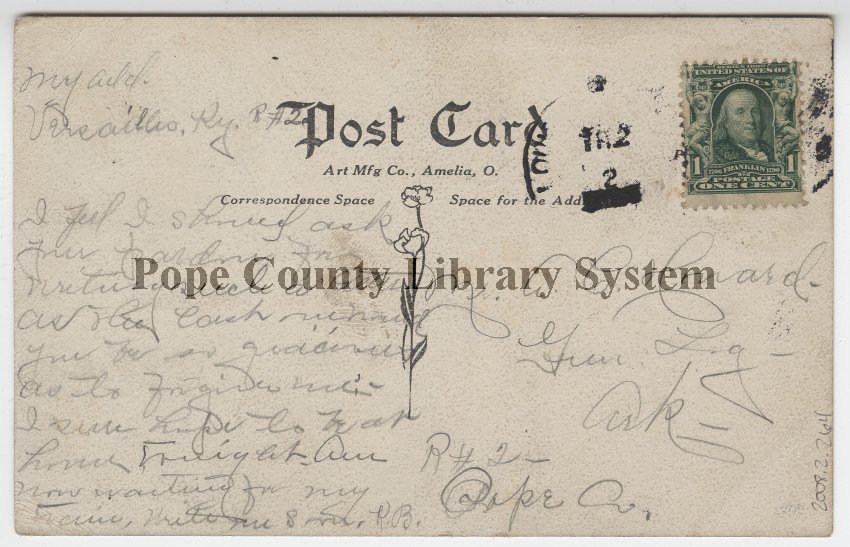 My add.
Versailles, Ky. R#2
Post Card
Art Mfg Co., Amelia, O.
Correspondence Space
Space for the Add
LOUI
2
SERIES 1902
UNITED STATES OF
AMERICA
1 1
1706 FRANKLIN 1790
POSTAGE
ONE CENT
Pope County Library System
I feel I should ask
your pardon for
writing such a
as this
you be so gracious
as to forgive me-
I sure hope to be at
home tonight. Am
now waiting for my
train, Write me soon, R.B.
Mr. A. B.
Gum Log-
Ark
R#2-
Pope Co.
2008.2.264